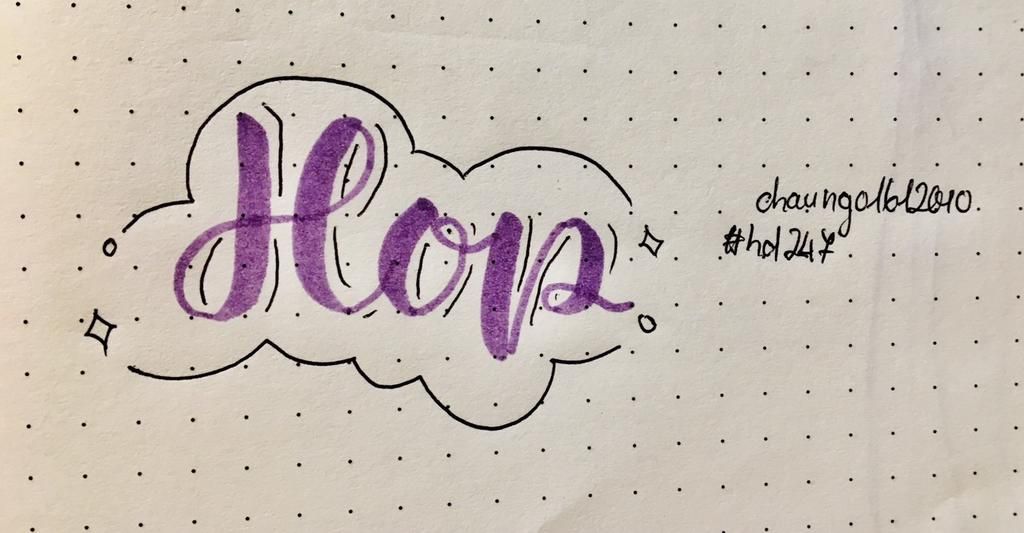 Hop
chaungo16122010.
#hd247